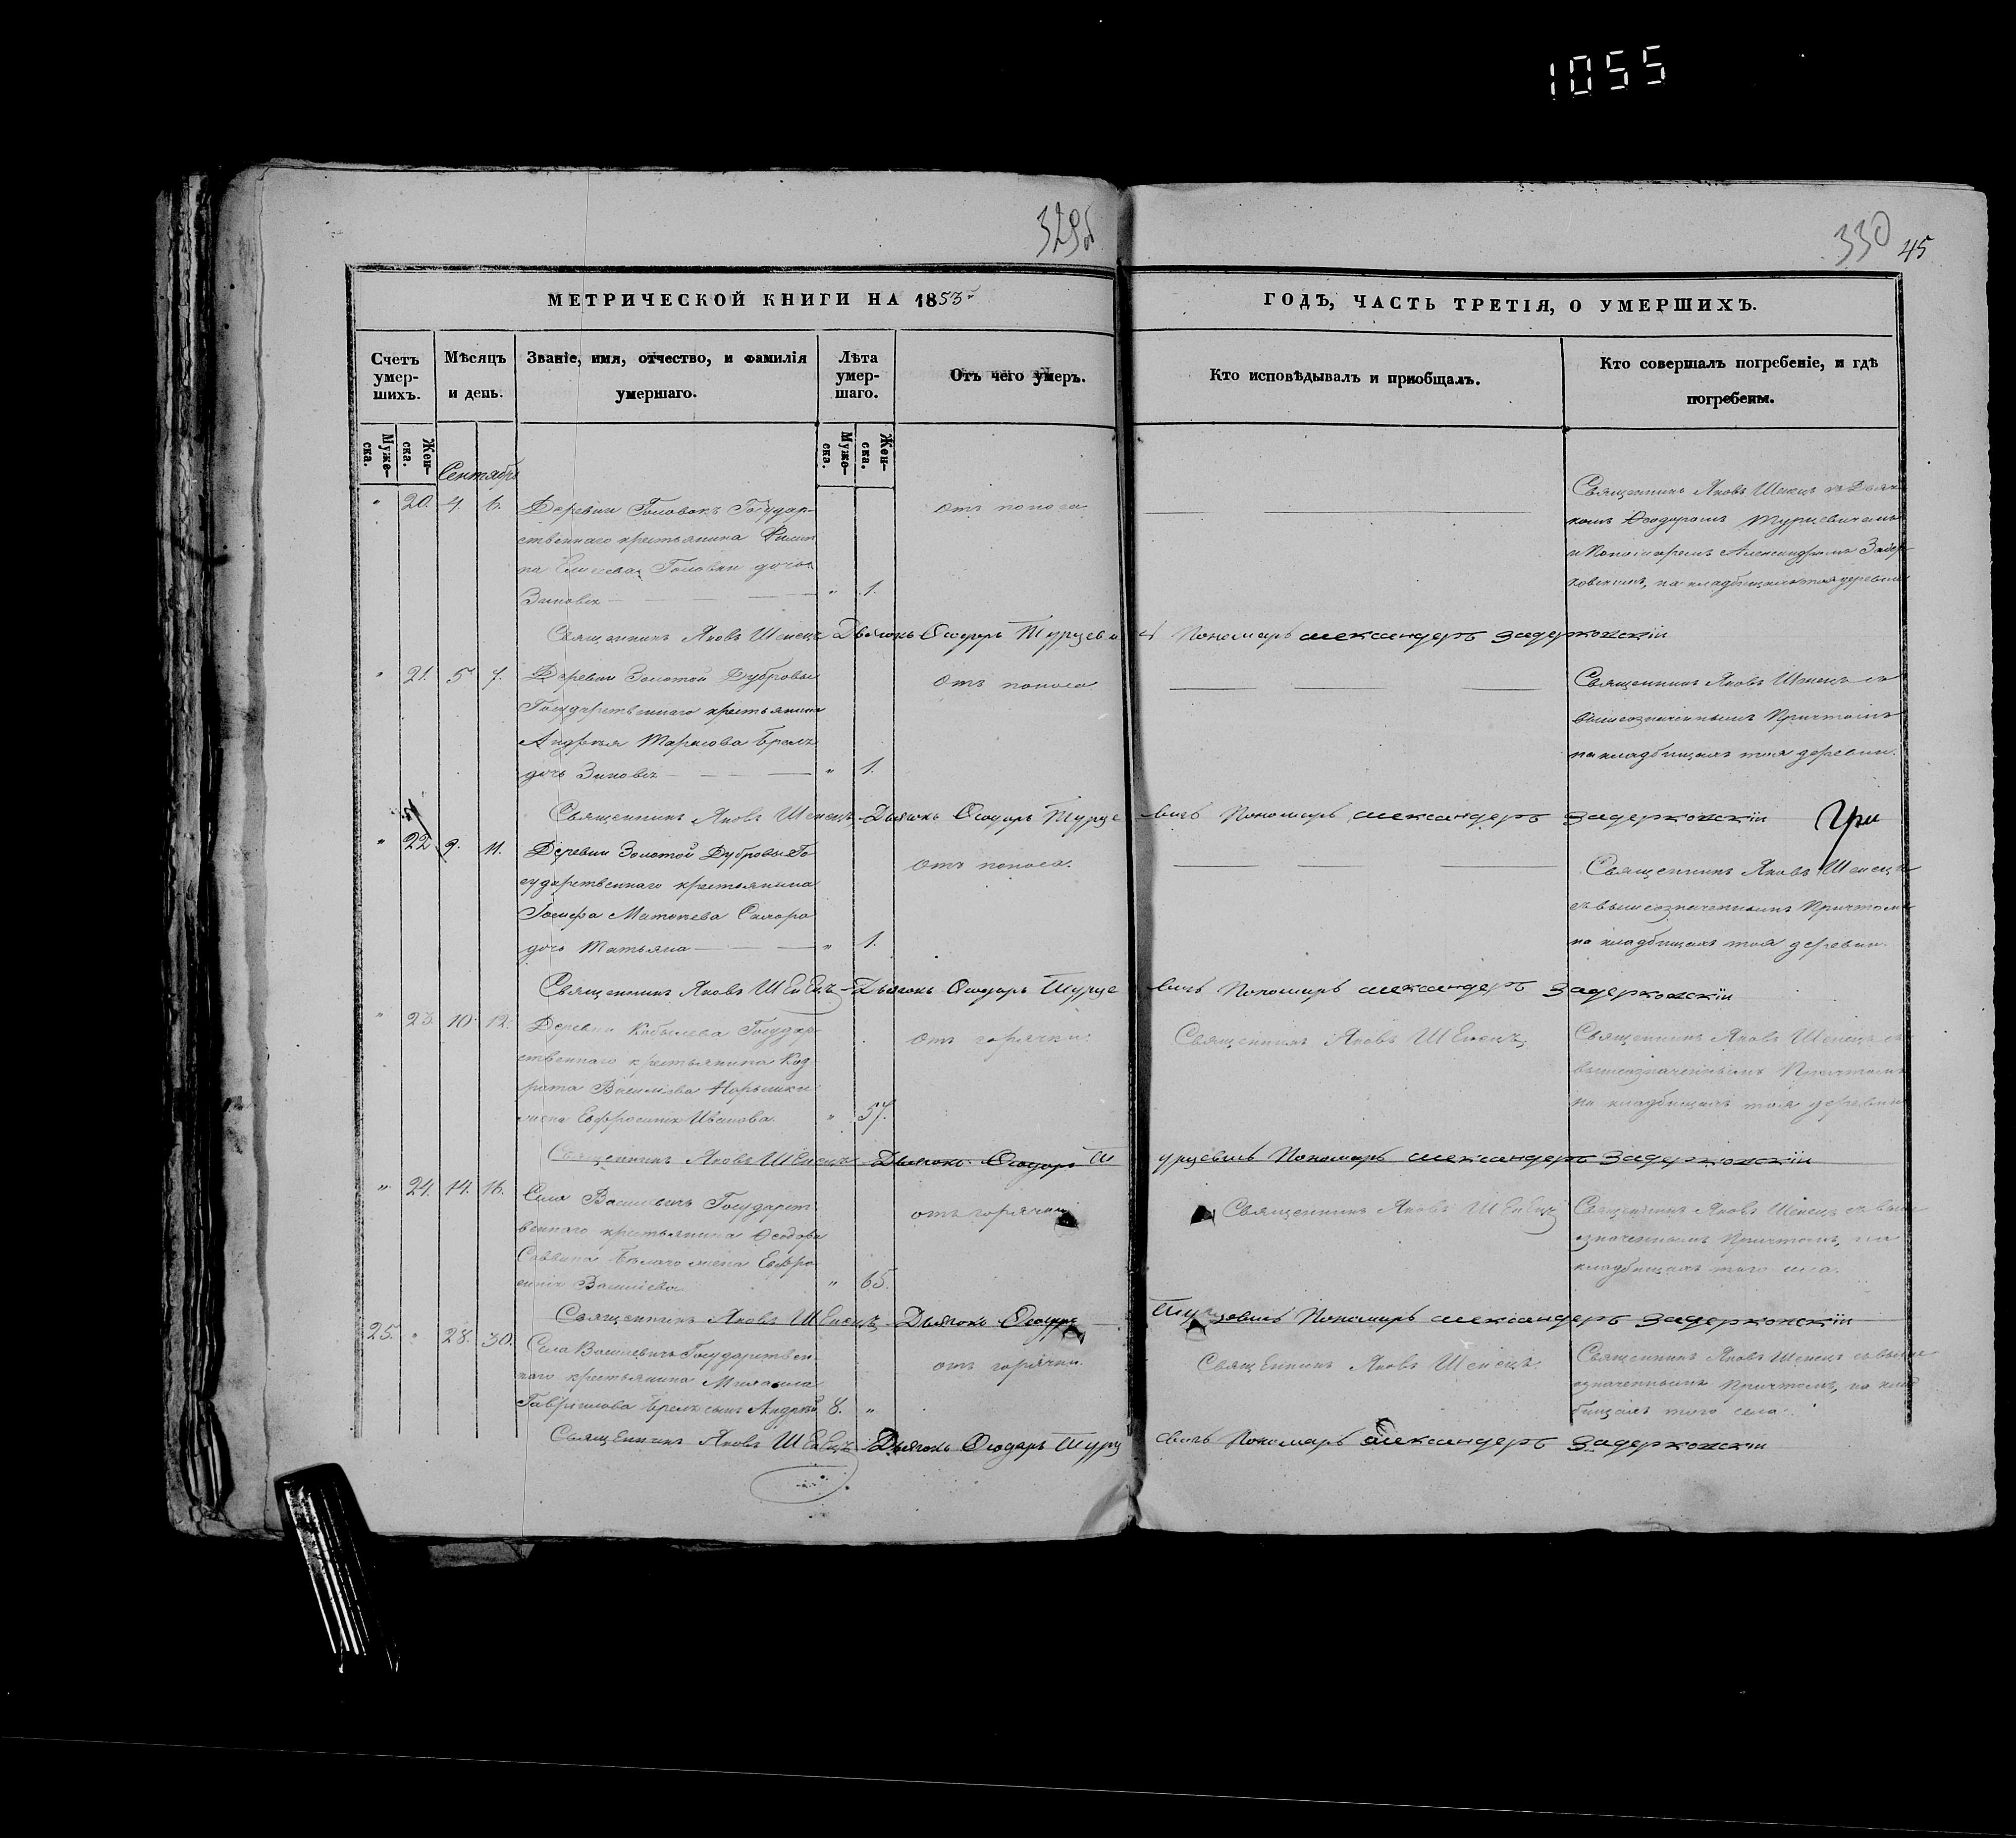 1055
329об
330 45
МЕТРИЧЕСКОЙ КНИГИ НА 1853
ГОДЪ, ЧАСТЬ ТРЕТІЯ, О УМЕРШИХЪ.
Счетъ умер-
шихъ.
Мѣсяцъ
и день.
Званіе, имя, отчество, и фамилія
умершаго.
Лѣта
умер-
шаго.
Отъ чего умеръ.
Кто исповѣдывалъ и пріобщалъ.
Кто совершалъ погребеніе, и гдѣ
погребены.
Муже-
ска.
Жен-
ска.
Муже-
ска.
Жен-
ска.
Сентябрь
" 20. 4. 6.
Деревни Головокъ Государ-
ственнаго крестьянина Филип
па Головки дочь
Зиновія " 1.
отъ поноса
Священникъ Яковъ Шенецъ съ Дьяч
комъ Ѳеодоромъ Турцевичемъ
и Пономаремъ Александромъ Задер
ковскимъ, на кладбищахъ тоя деревни
Священникъ Яковъ Шенецъ Дьячокъ Ѳеодоръ Турцевичъ Пономарь александеръ задерковскій
" 21. 5. 7.
Деревни Золотой Дубровы
Государственнаго крестьянина
Андрея Тарасова Брель
дочь Зиновія " 1.
Отъ поноса
Священникъ Яковъ Шенецъ съ
вышеозначеннымъ Причтомъ
на кладбищахъ тоя деревни.
Священникъ Яковъ Шенецъ Дьячокъ Ѳеодоръ Турцевичъ Пономарь александеръ задерковскій
" 22 9. 11.
Деревни Золотой Дубровы Го
сударственнаго крестьянина
Іосифа Матвѣева
дочь Татьяна " 1.
отъ поноса.
Священникъ Яковъ Шенецъ
съ вышеозначеннымъ Причтомъ
на кладбищахъ тоя деревни.
Священникъ Яковъ Шенецъ Дьячокъ Ѳеодоръ Турцевичъ Пономарь александеръ задерковскій
" 23. 10. 12.
Деревни Кобылева Государ-
ственнаго крестьянина Код
рата Васильева
жена Евфросинія Иванова " 57.
отъ горячки.
Священникъ Яковъ Шенецъ.
Священникъ Яковъ Шенецъ съ
вышеозначеннымъ Причтомъ
на кладбищахъ тоя деревни
Священникъ Яковъ Шенецъ Дьячокъ Ѳеодоръ Турцевичъ Пономарь александеръ задерковскій
" 24. 14. 16.
Села Василевичъ Государст
веннаго крестьянина Ѳеодора
Саввина жена Евфро
синія Васильева " 65.
отъ горячки
Священникъ Яковъ Шенецъ
Священникъ Яковъ Шенецъ съ выше
означеннымъ Причтомъ, на
кладбищахъ того села.
Священникъ Яковъ Шенецъ Дьячокъ Ѳеодоръ Турцевичъ Пономарь александеръ задерковскій
25. " 28. 30.
Села Василевичъ Государствен-
наго крестьянина Михаила
Гаврилова Брель сынъ Андрей 8. "
отъ горячки.
Священникъ Яковъ Шенецъ.
Священникъ Яковъ Шенецъ съ выше
означеннымъ Причтомъ, на клад
бищахъ того села.
Священникъ Яковъ Шенецъ Дьячокъ Ѳеодоръ Турцевичъ Пономарь александеръ задерковскій